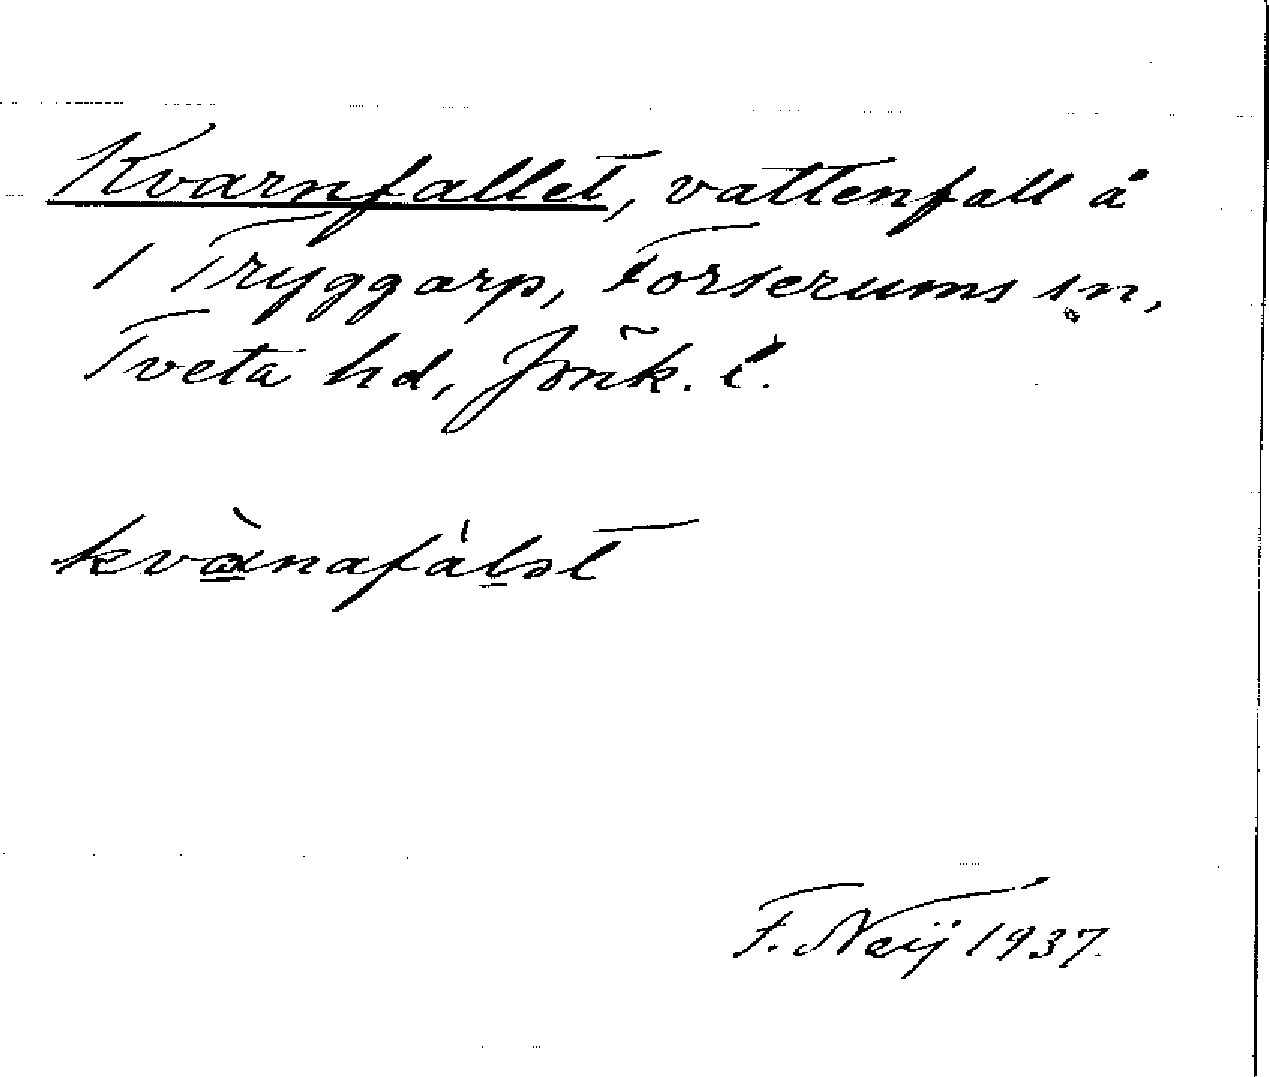 Kvarnfallet, vattenfall å
1 Tryggarp, Forserums sn,
Tveta hd, Jönk. l.
kvànafàlət
F. Neij 1937.